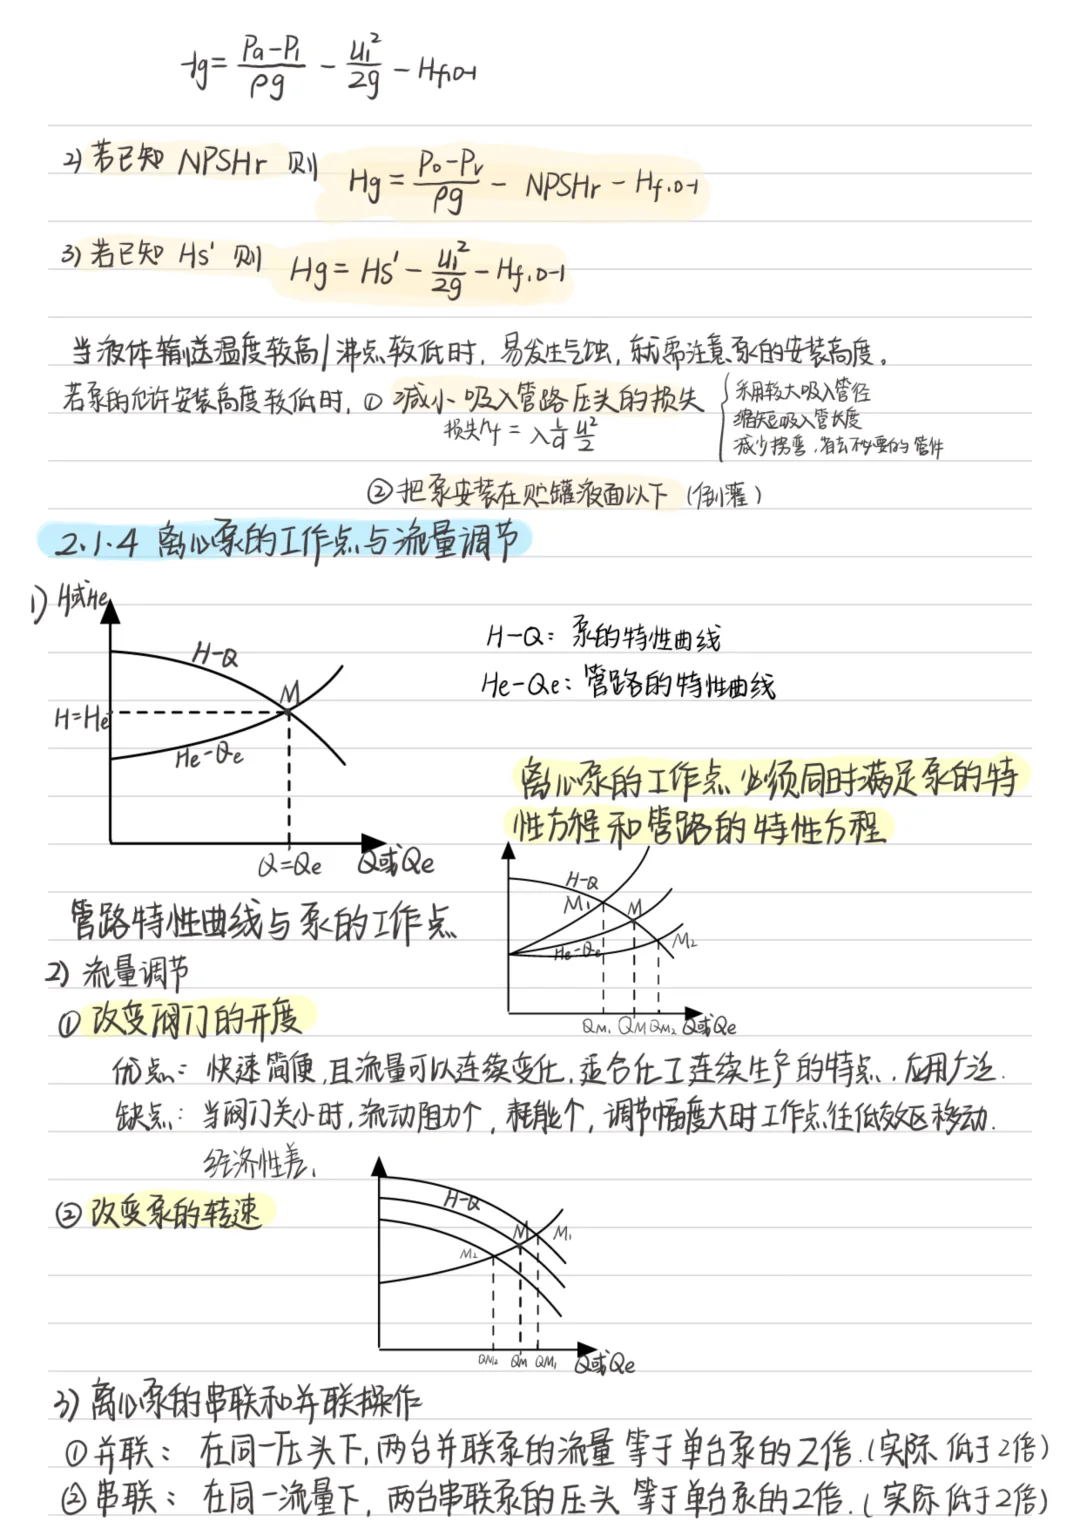 Hg = (Pa-P1)/(ρg) - u1²/(2g) - Hf,0-1
2) 若已知 NPSHr 则 Hg = (P0-Pv)/(ρg) - NPSHr - Hf.0-1
3) 若已知 Hs' 则 Hg = Hs' - u1²/(2g) - Hf.0-1
当液体输送温度较高/沸点较低时, 易发生气蚀, 就需注意泵的安装高度。
若泵的允许安装高度较低时, ① 减小吸入管路压头的损失
采用较大吸入管径
缩短吸入管长度
减少拐弯,省去不必要的管件
损失hf = λ l/d u²/2
② 把泵安装在贮罐液面以下 (倒灌)
2.1.4 离心泵的工作点与流量调节
1) H或He
H-Q
M
H=He
He-Qe
Q=Qe
Q或Qe
H-Q: 泵的特性曲线
He-Qe: 管路的特性曲线
离心泵的工作点必须同时满足泵的特
性方程和管路的特性方程
H-Q
M1
M
M2
He-Qe
QM1 QM QM2 Q或Qe
管路特性曲线与泵的工作点
2) 流量调节
① 改变阀门的开度
优点: 快速简便,且流量可以连续变化,适合化工连续生产的特点.应用广泛.
缺点: 当阀门关小时,流动阻力个, 耗能个, 调节幅度大时工作点往低效区移动.
经济性差.
② 改变泵的转速
H-Q
M
M1
M2
QM2 QM QM1 Q或Qe
3) 离心泵的串联和并联操作
① 并联: 在同一压头下,两台并联泵的流量等于单台泵的2倍.(实际低于2倍)
② 串联: 在同一流量下,两台串联泵的压头等于单台泵的2倍.(实际低于2倍)